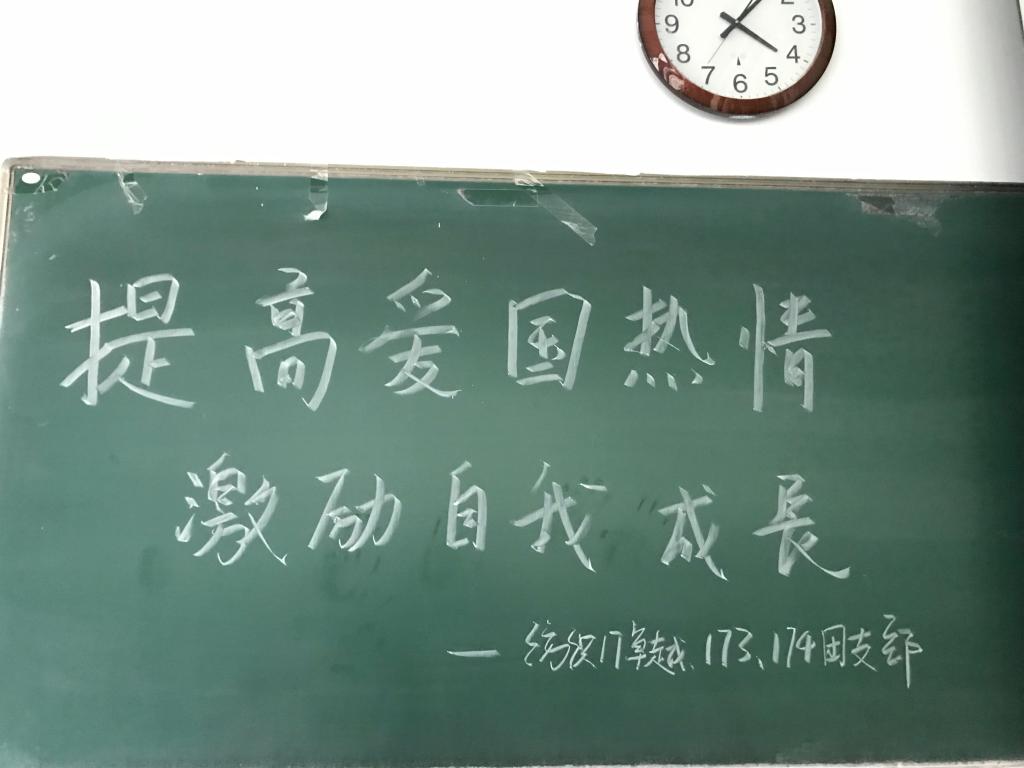 10 2
9 3
8 4
7 6 5
提高爱国热情
激励自我成長
—纺织17卓越、173、174团支部